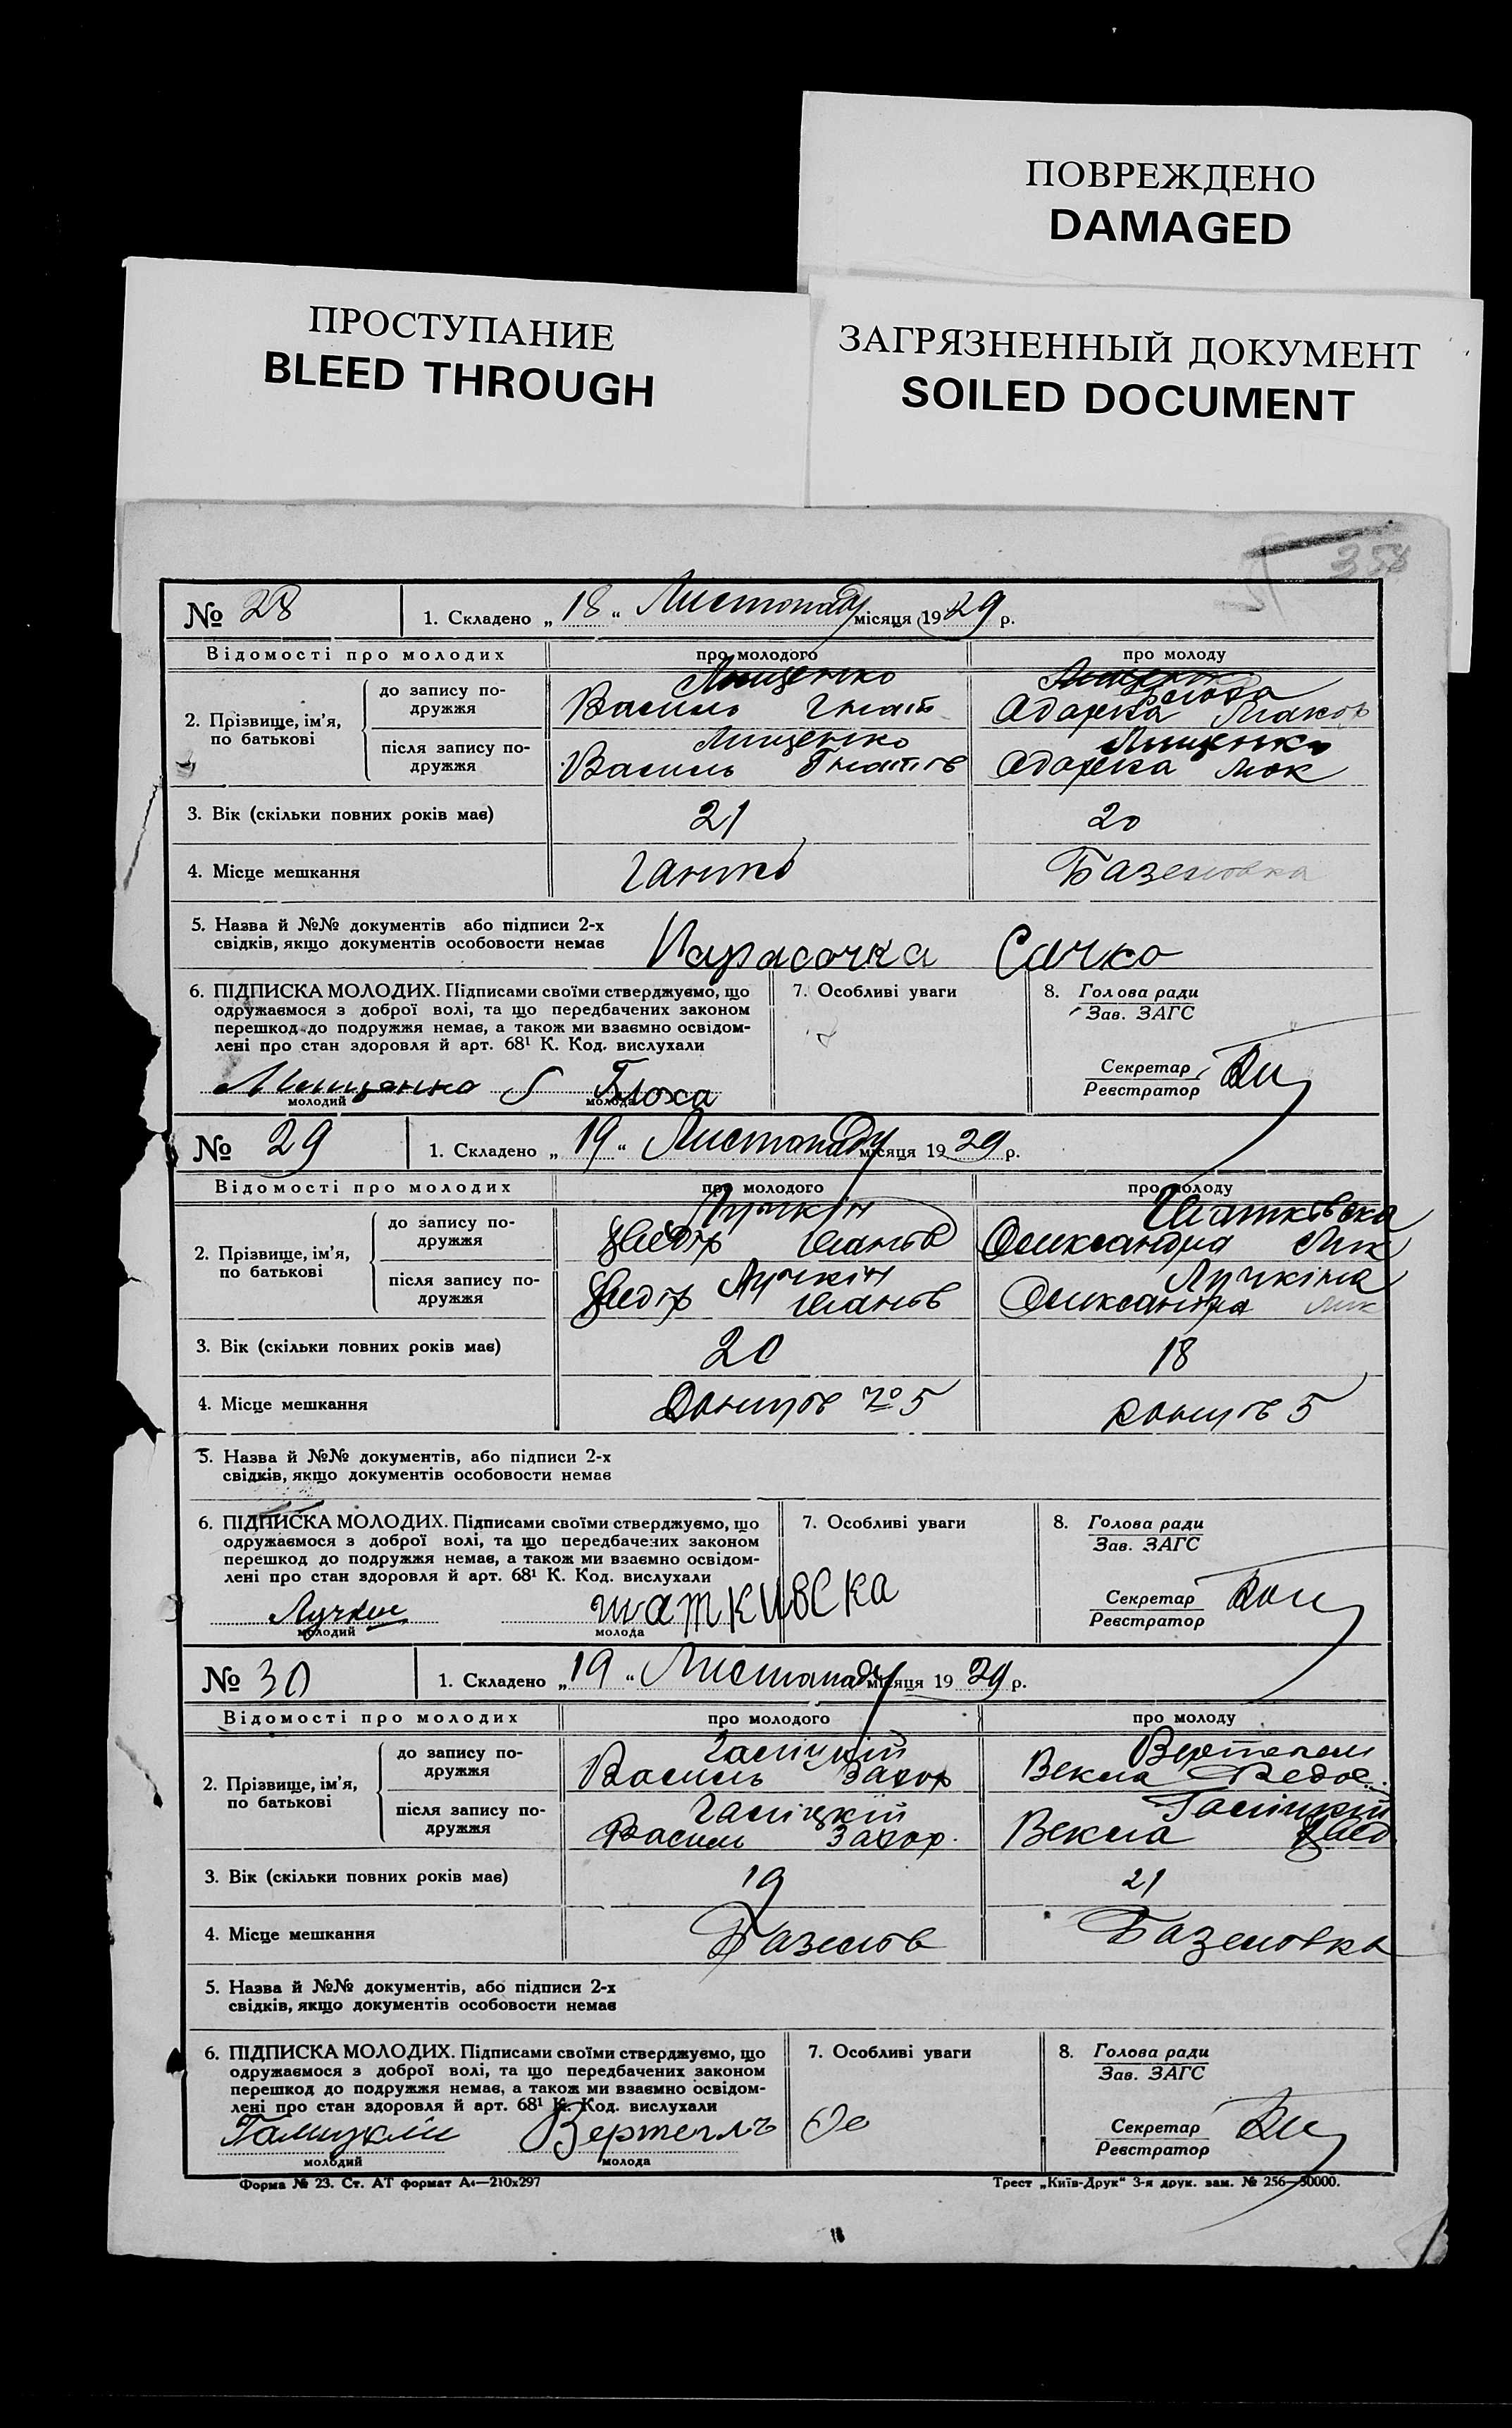 ПОВРЕЖДЕНО
DAMAGED
ПРОСТУПАНИЕ
BLEED THROUGH
ЗАГРЯЗНЕННЫЙ ДОКУМЕНТ
SOILED DOCUMENT
358
№ 28 1. Складено „ 18 “ Листопаду місяця 1929 р.
Відомості про молодих про молодого про молоду
2. Прізвище, ім’я, по батькові
до запису по-
дружжя
Мищенко
Василь Гнат
Одарка
після запису по-
дружжя
Мищенко
Василь Гнатів
Мищенко
Одарка
3. Вік (скільки повних років має) 21 20
4. Місце мешкання Базеловка
5. Назва й №№ документів або підписи 2-х
свідків, якщо документів особовости немає
Карасочка Сачко
6. ПІДПИСКА МОЛОДИХ. Підписами своїми стверджуємо, що
одружаємося з доброї волі, та що передбачених законом
перешкод до подружжя немає, а також ми взаємно освідом-
лені про стан здоровля й арт. 68¹ К. Код. вислухали
Мищенко Блоха
молодий молода
7. Особливі уваги
8. Голова ради
Зав. ЗАГС
Секретар
Реєстратор
№ 29 1. Складено „ 19 “ Листопаду місяця 1929 р.
Відомості про молодих про молодого про молоду
2. Прізвище, ім’я,
по батькові
до запису по-
дружжя
Лучкін
Федір Іванов
Шатковська
Олександра Мик
після запису по-
дружжя
Лучкін
Федір Іванов
Лучкіна
Олександра Мик
3. Вік (скільки повних років має) 20 18
4. Місце мешкання
5. Назва й №№ документів, або підписи 2-х
свідків, якщо документів особовости немає
6. ПІДПИСКА МОЛОДИХ. Підписами своїми стверджуємо, що
одружаємося з доброї волі, та що передбачених законом
перешкод до подружжя немає, а також ми взаємно освідом-
лені про стан здоровля й арт. 68¹ К. Код. вислухали
Лучкин шаткивска
молодий молода
7. Особливі уваги
8. Голова ради
Зав. ЗАГС
Секретар
Реєстратор
№ 30 1. Складено „ 19 “ Листопаду місяця 1929 р.
Відомості про молодих про молодого про молоду
2. Прізвище, ім’я,
по батькові
до запису по-
дружжя
Галіцкій
Василь Захор
Вертегел
Векла Федос.
після запису по-
дружжя
Галіцкій
Василь Захор.
Галіцкій
Векла Фед
3. Вік (скільки повних років має) 19 21
4. Місце мешкання Базелов Базеловка
5. Назва й №№ документів, або підписи 2-х
свідків, якщо документів особовости немає
6. ПІДПИСКА МОЛОДИХ. Підписами своїми стверджуємо, що
одружаємося з доброї волі, та що передбачених законом
перешкод до подружжя немає, а також ми взаємно освідом-
лені про стан здоровля й арт. 68¹ К. Код. вислухали
Галицкий Вертеглъ
молодий молода
7. Особливі уваги
8. Голова ради
Зав. ЗАГС
Секретар
Реєстратор
Форма № 23. Ст. АТ формат А₄—210х297
Трест „Київ-Друк“ 3-я друк. зам. № 256—50000.